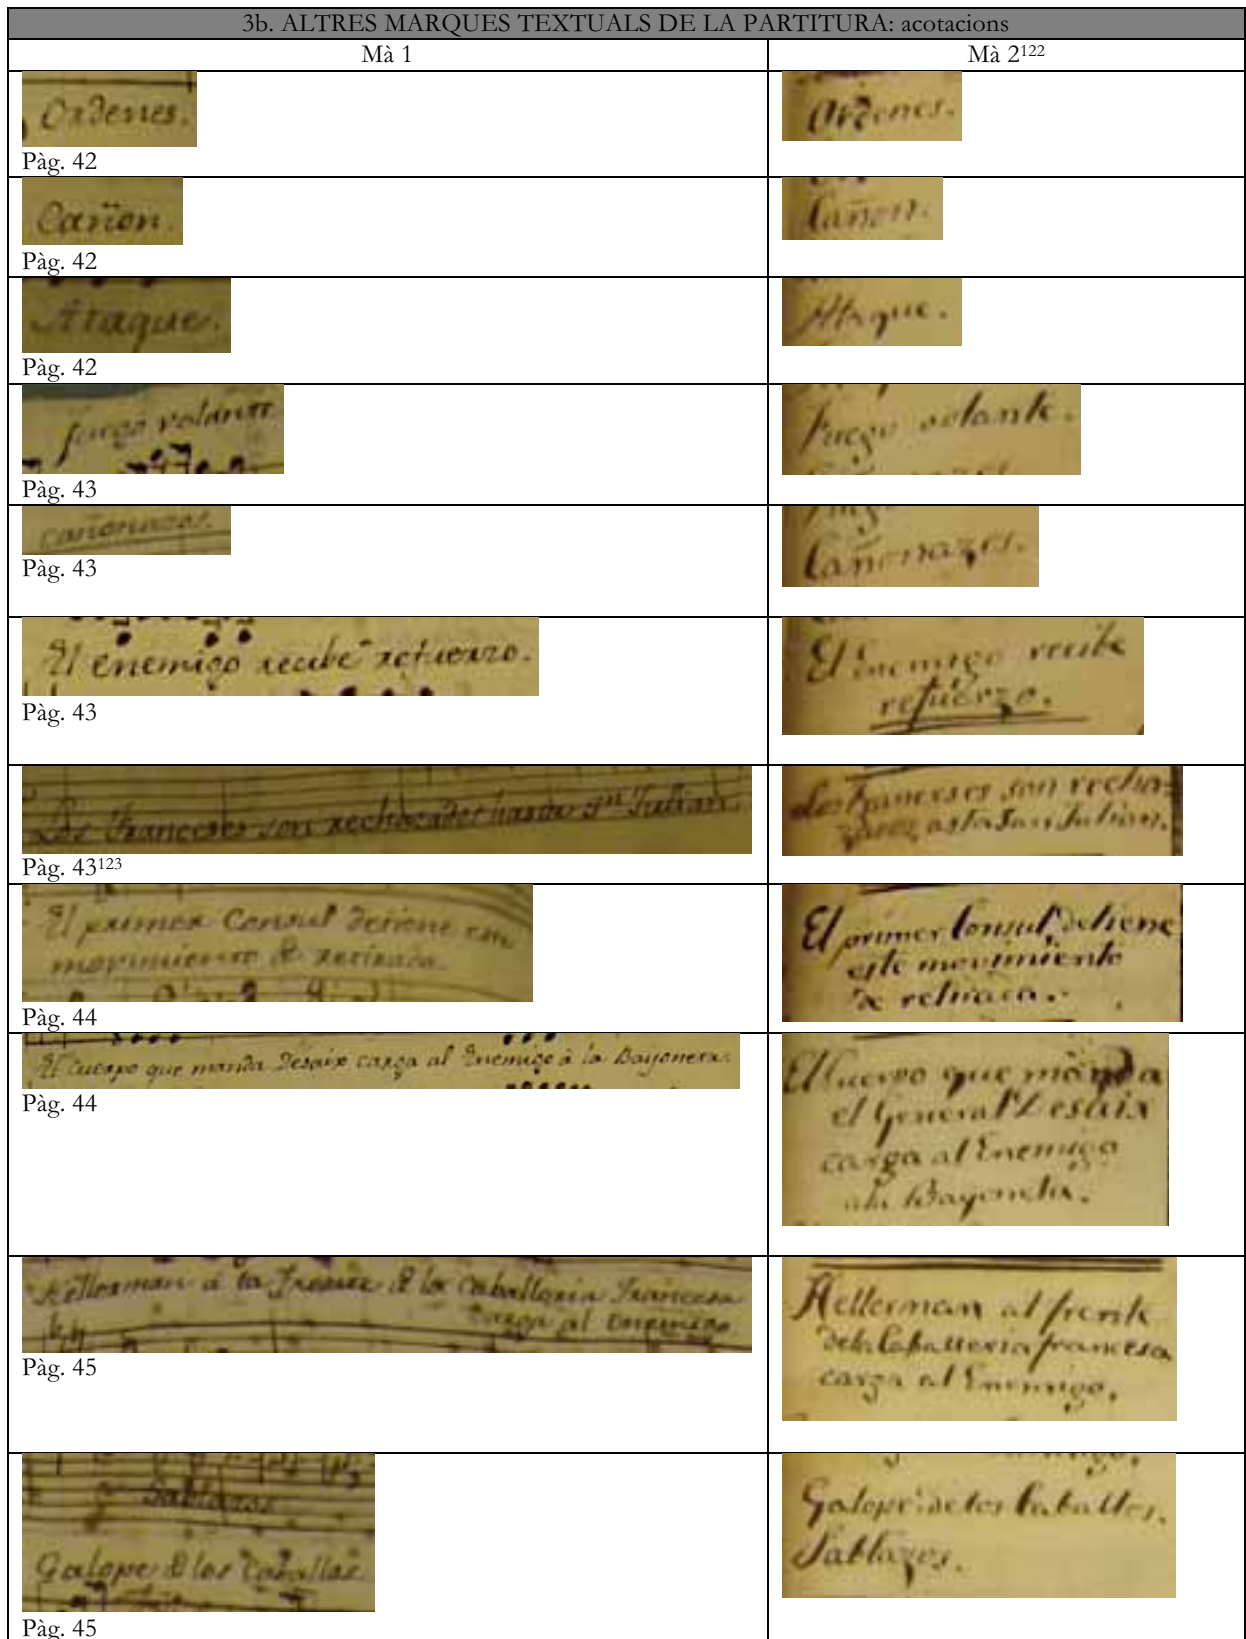 3b. ALTRES MARQUES TEXTUALS DE LA PARTITURA: acotacions
Mà 1
Mà 2122
Ordenes.
Ordenes.
Pàg. 42
Cañon.
Cañon.
Pàg. 42
Ataque.
Ataque.
Pàg. 42
fuego volante
fuego volante.
Pàg. 43
cañonazos.
Cañonazos.
Pàg. 43
El enemigo recibe refuerzo.
El Enemigo recibe
refuerzo.
Pàg. 43
Los Franceses son rechazados hasta Sn Julian.
Los franceses son recha-
zados asta San Julian.
Pàg. 43123
El primer Consul detiene este
movimiento de retirada.
El primer Consul detiene
este movimiento
de retirada.
Pàg. 44
El Cuerpo que manda Desaix carga al Enemigo à la Bayoneta.
El Cuerpo que manda
el General Desaix
carga al Enemigo
ala Bayoneta.
Pàg. 44
Kellerman a la Frente de la Caballeria Francesa
carga al enemigo
Kellerman al frente
dela Caballeria francesa
carga al Enemigo.
Pàg. 45
Sablazos
Galope de los Caballos
Galope de los Caballos.
Sablazos.
Pàg. 45